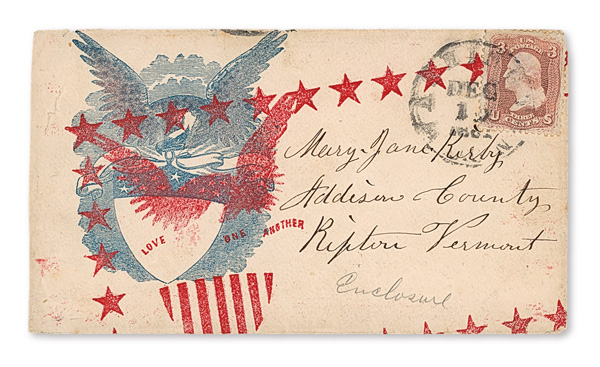 U. S. 3
3 CENTS
U S
DEC
LOVE ONE ANOTHER
Mary Jane Kirby
Addison County
Ripton Vermont
Enclosure